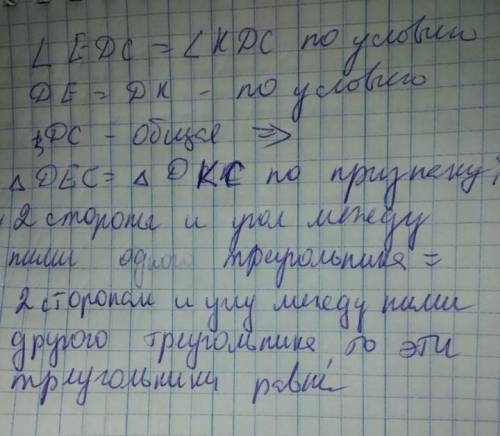 ∠ EDC = ∠ KDC по условию
DE = DK - по условию
DC - общая ⇒
△ DEC = △ DKC по признаку:
2 стороны и угол между
ними одного треугольника =
2 сторонам и углу между ними
другого треугольника, то эти
треугольники равны